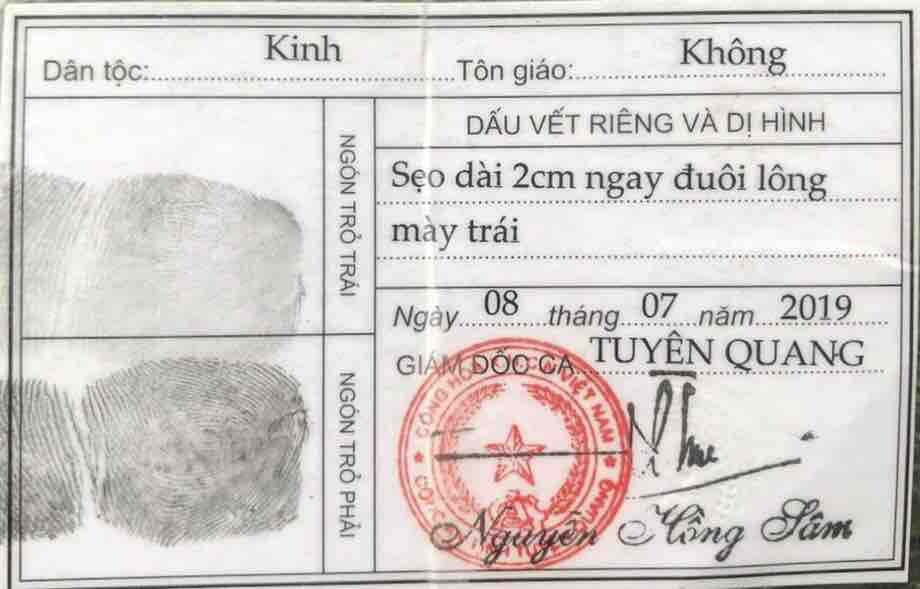 Dân tộc: Kinh Tôn giáo: Không
NGÓN TRỎ TRÁI
NGÓN TRỎ PHẢI
DẤU VẾT RIÊNG VÀ DỊ HÌNH
Sẹo dài 2cm ngay đuôi lông
mày trái
Ngày 08 tháng 07 năm 2019
GIÁM ĐỐC CA TUYÊN QUANG
Nguyễn Hồng Sâm